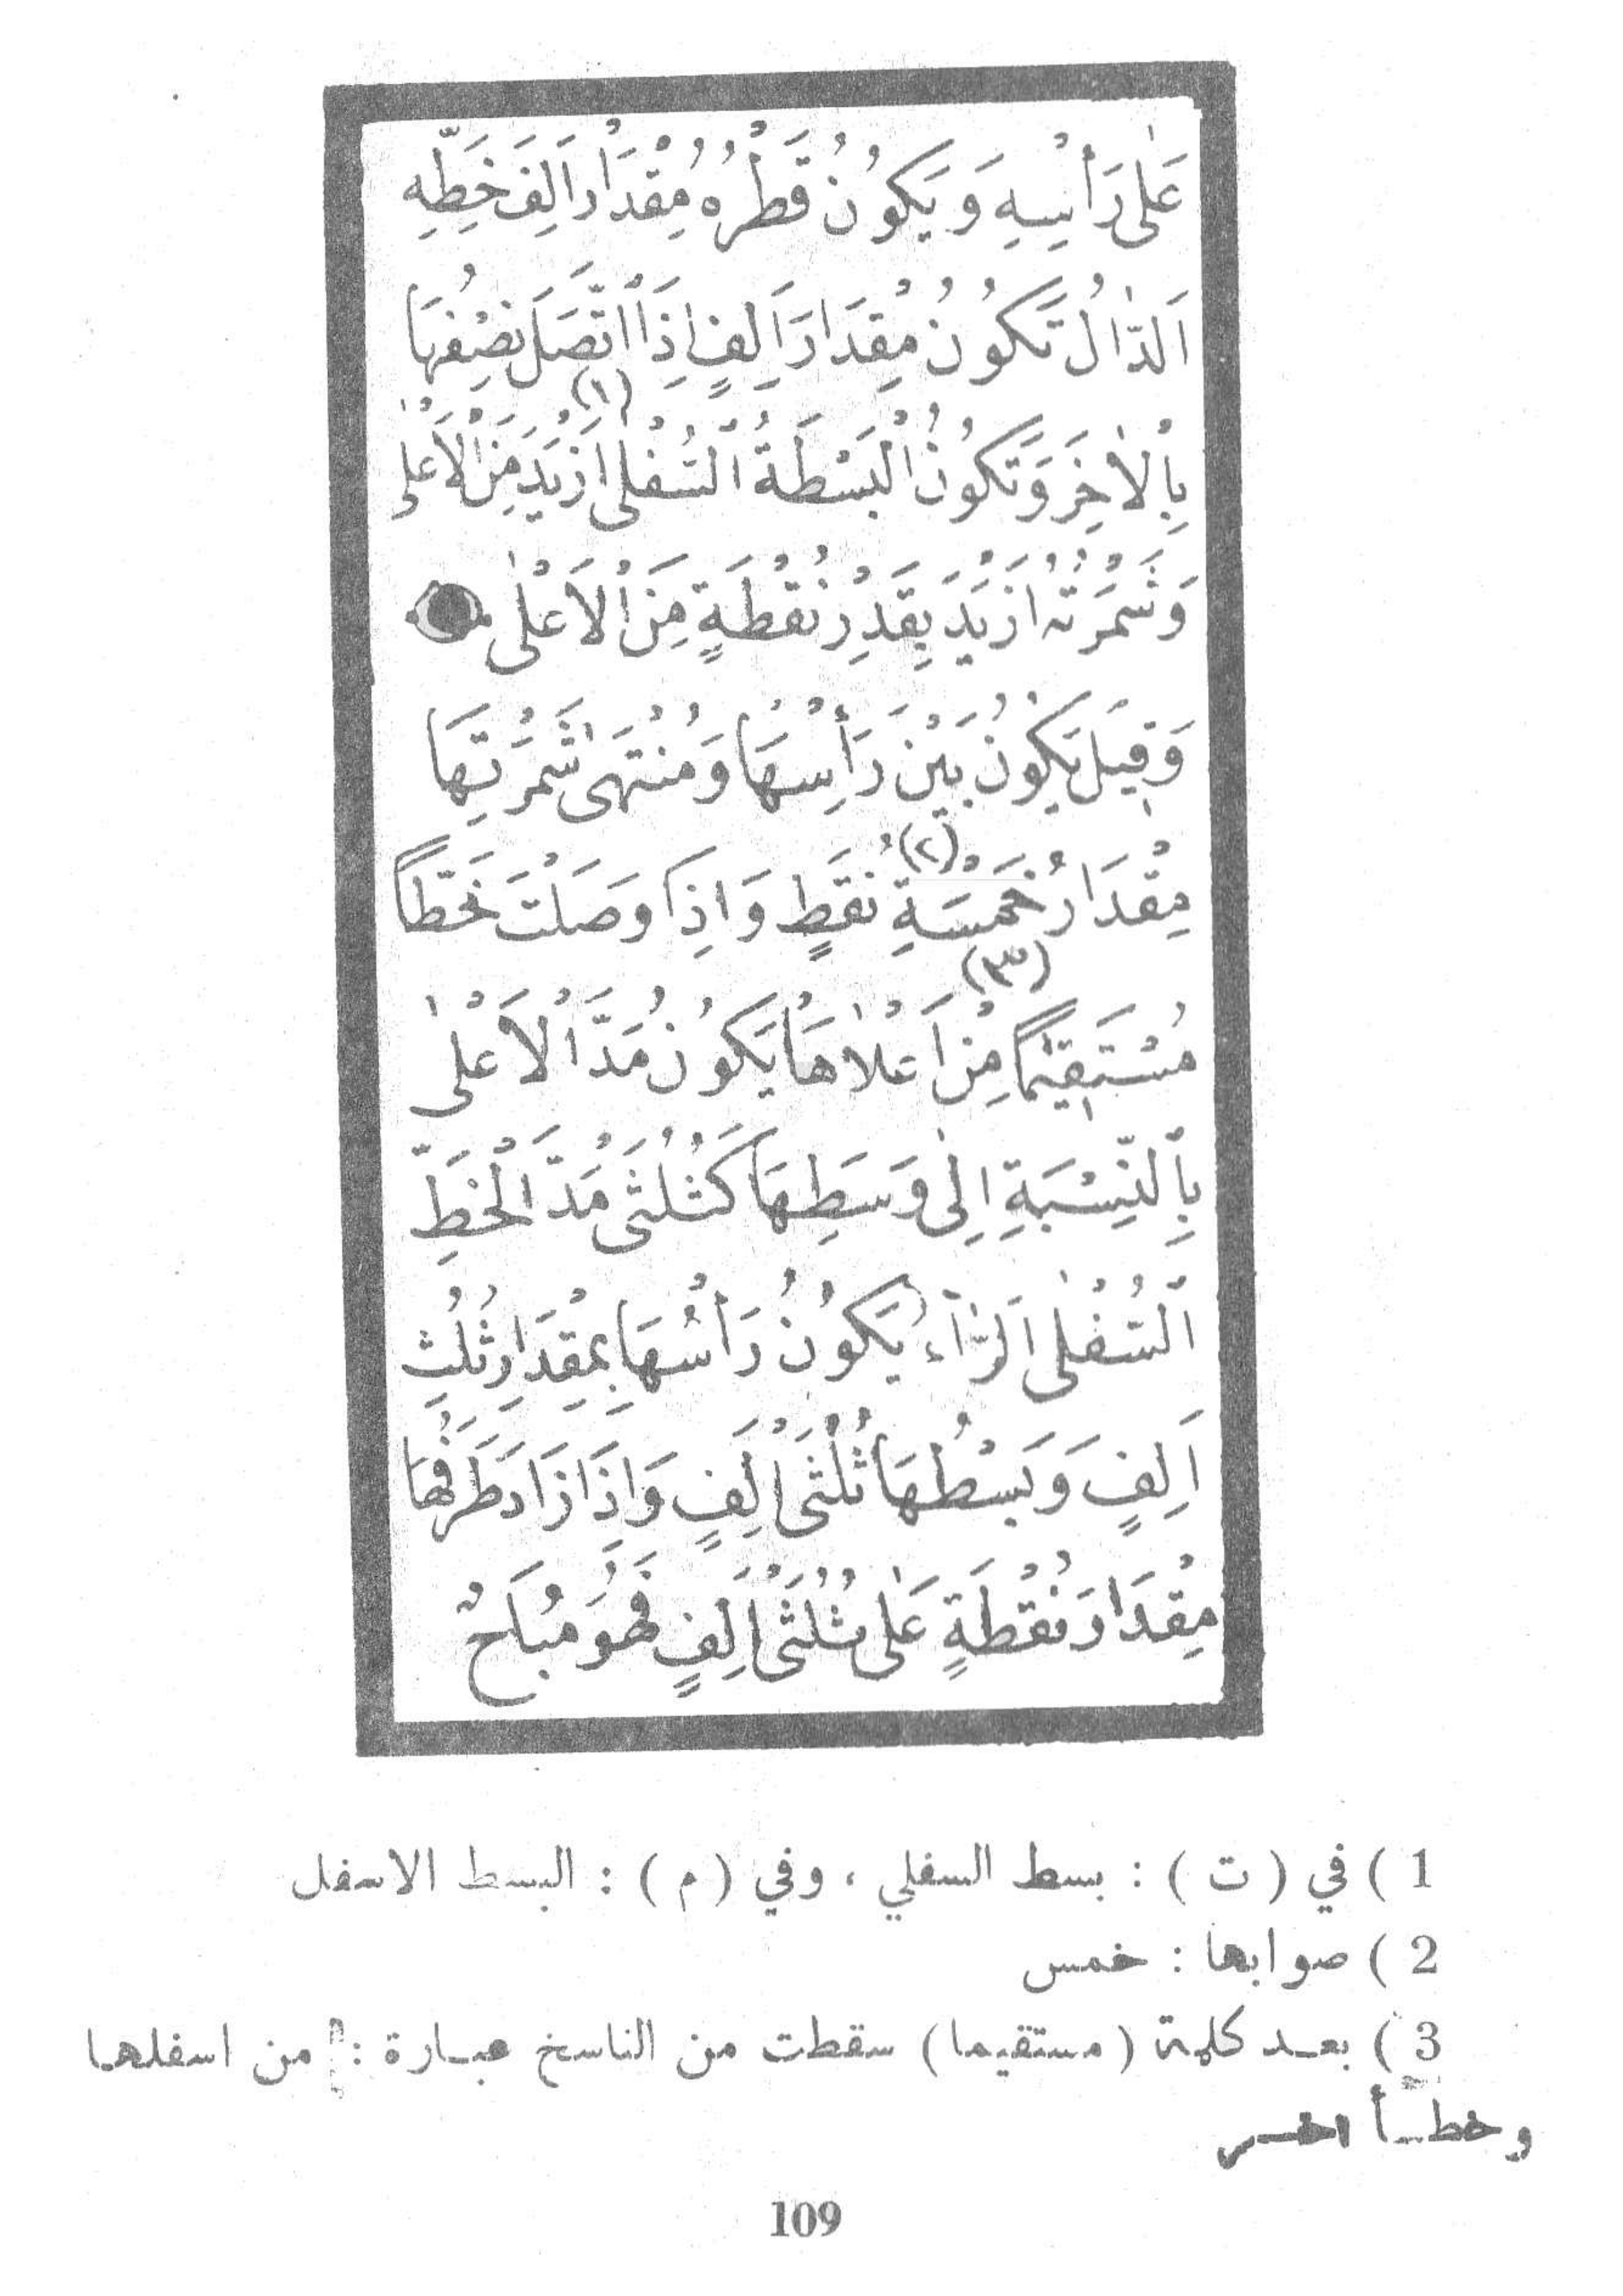 عَلٰى رَأْسِهِ وَيَكُونُ قَطْرُهُ مِقْدَارَ اَلِفَ خَطِّهِ
اَلدَّالُ تَكُونُ مِقْدَارَ اَلِفٍ اِذَا اتَّصَلَ نِصْفُهَا
بِالْاٰخَرِ وَتَكُونُ الْبَسْطَةُ السُّفْلٰى (١) اَزْيَدَ مِنَ الْاَعْلٰى
وَشَمْرَتُهُ اَزْيَدَ بِقَدْرِ نُقْطَةٍ مِنَ الْاَعْلٰى
وَقِيلَ يَكُونُ بَيْنَ رَأْسِهَا وَمُنْتَهٰى شَمْرَتِهَا
مِقْدَارُ خَمْسَةِ (٢) نُقَطٍ وَاِذَا وَصَلْتَ خَطًّا
مُسْتَقِيمًا (٣) مِنْ اَعْلَاهَا يَكُونُ مَدَّ الْاَعْلٰى
بِالنِّسْبَةِ اِلٰى وَسَطِهَا كَثُلُثَىْ مَدِّ الْخَطِّ
السُّفْلٰى اَلرَّاءُ يَكُونُ رَأْسُهَا بِمِقْدَارِ ثُلُثِ
اَلِفٍ وَبَسْطُهَا ثُلُثَىْ اَلِفٍ وَاِذَا زَادَ طَرَفُهَا
مِقْدَارَ نُقْطَةٍ عَلٰى ثُلُثَىْ اَلِفٍ فَهُوَ مُبَاحٌ
1 ) في ( ت ) : بسط السفلي ، وفي ( م ) : البسط الاسفل
2 ) صوابها : خمس
3 ) بعد كلمة ( مستقيما ) سقطت من الناسخ عبارة : من اسفلها
وخطاً اخر
109